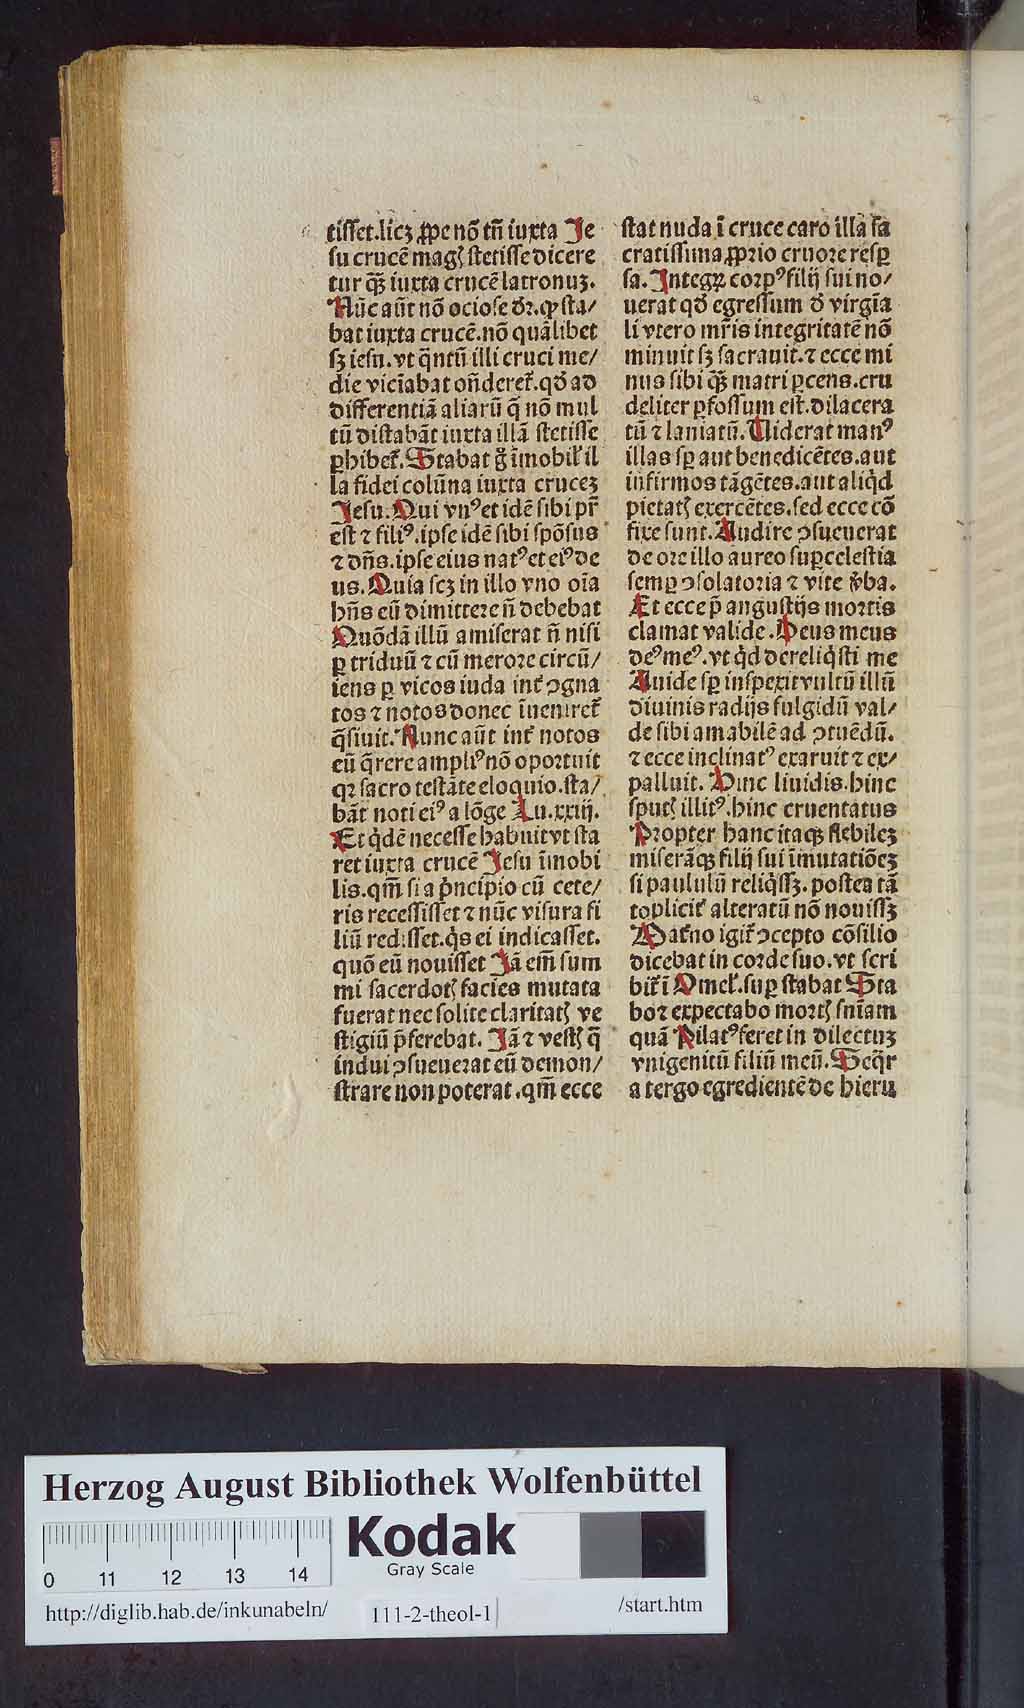 tiſſet.licꝫ ꝓpe nō tñ iuxta Je
ſu crucē magꝭ ſtetiſſe dicere
tur qꝫ̃ iuxta crucē latronuꝫ.
Nūc aūt nō ocioſe dr̄. ꝙ ſta/
bat iuxta crucē.nō quālibet
ſꝫ ieſu.vt q̄ntū illi cruci me/
die viciabat oñderet᷑.qď ad
differentiā aliarū q̄ nō mul
tū diſtabāt iuxta illā ſtetiſſe
ꝑhibet᷑.Stabat g̊ īmobil᷑ il
la fidei colūna iuxta cruceꝫ
Jeſu.Qui vnꝰ et idē ſibi pr̄
eſt ⁊ filiꝰ.ipſe idē ſibi ſpōſus
⁊ dñs.ipſe eius natꝰ et eiꝰ de
us.Quia ſcꝫ in illo vno oīa
hñs eū dimittere ñ debebat
Quōdā illū amiſerat ñ niſi
ꝑ triduū ⁊ cū merore circū/
iens ꝑ vicos iuda int᷑ ↄgna
tos ⁊ notos donec īueniret᷑
q̄ſiuit.Nunc aūt int᷑ notos
eū q̄rere ampliꝰ nō oportuit
qꝛ ſacro teſtāte eloquio.ſta/
bāt noti eiꝰ a lōge Lu.xxiij.
Et q̇dē neceſſe habuit vt ſta
ret iuxta crucē Jeſu īmobi
lis.qm̄ ſi a pͥncipio cū cete/
ris receſſiſſet ⁊ nūc viſura fi
liū rediſſet.q̇s ei indicaſſet.
quō eū nouiſſet Jā em̄ ſum
mi ſacerdotꝭ facies mutata
fuerat nec ſolite claritatꝭ ve
ſtigiū p̄ferebat. Jā ⁊ veſtꝭ q̄
indui ↄſueuerat eū demon/
ſtrare non poterat.qm̄ ecce
ſtat nuda ī cruce caro illa ſa
cratiſſima ꝓprio cruore reſꝑ
ſa.Integꝝ corpꝰ filij ſui no/
uerat qď egreſſum ď virgīa
li vtero mr̄is integritatē nō
minuit ſꝫ ſacrauit.⁊ ecce mi
nus ſibi qꝫ̃ matri ꝑcens.cru
deliter ꝑfoſſum eſt.dilacera
tū ⁊ laniatū.Uiderat manꝰ
illas ſꝑ aut benedicētes.aut
infirmos tāgētes.aut aliq̇d
pietatꝭ exercētes.ſed ecce cō
fixe ſunt.Audire ↄſueuerat
de ore illo aureo ſuꝑceleſtia
ſemꝑ ↄſolatoria ⁊ vite v̓ba.
Et ecce p̄ anguſtijs mortis
clamat valide.Deus meus
deꝰ meꝰ.vt q̇d dereliq̇ſti me
Auide ſꝑ inſpexit vultū illū
diuinis radijs fulgidū val/
de ſibi amabilē ad ↄtuēdū.
⁊ ecce inclinatꝰ exaruit ⁊ ex/
palluit. Hinc liuidis.hinc
ſputꝭ illitꝰ.hinc cruentatus
Propter hanc itaqꝫ flebileꝫ
miſerāqꝫ filij ſui īmutatiōeꝫ
ſi paululū reliq̇ſſꝫ.poſtea tā
toplicit᷑ alteratū nō nouiſſꝫ
Mat᷑no igit᷑ ↄcepto cōſilio
dicebat in corde ſuo.vt ſcri
bit᷑ ī Omel᷑.ſuꝑ ſtabat Sta
bo ⁊ expectabo mortꝭ ſnīam
quā Pilatꝰ feret in dilectuꝫ
vnigenitū filiū meū.Seq̄r
a tergo egredientē de hieru
Herzog August Bibliothek Wolfenbüttel
Kodak
Gray Scale
0 11 12 13 14
http://diglib.hab.de/inkunabeln/ 111-2-theol-1 /start.htm